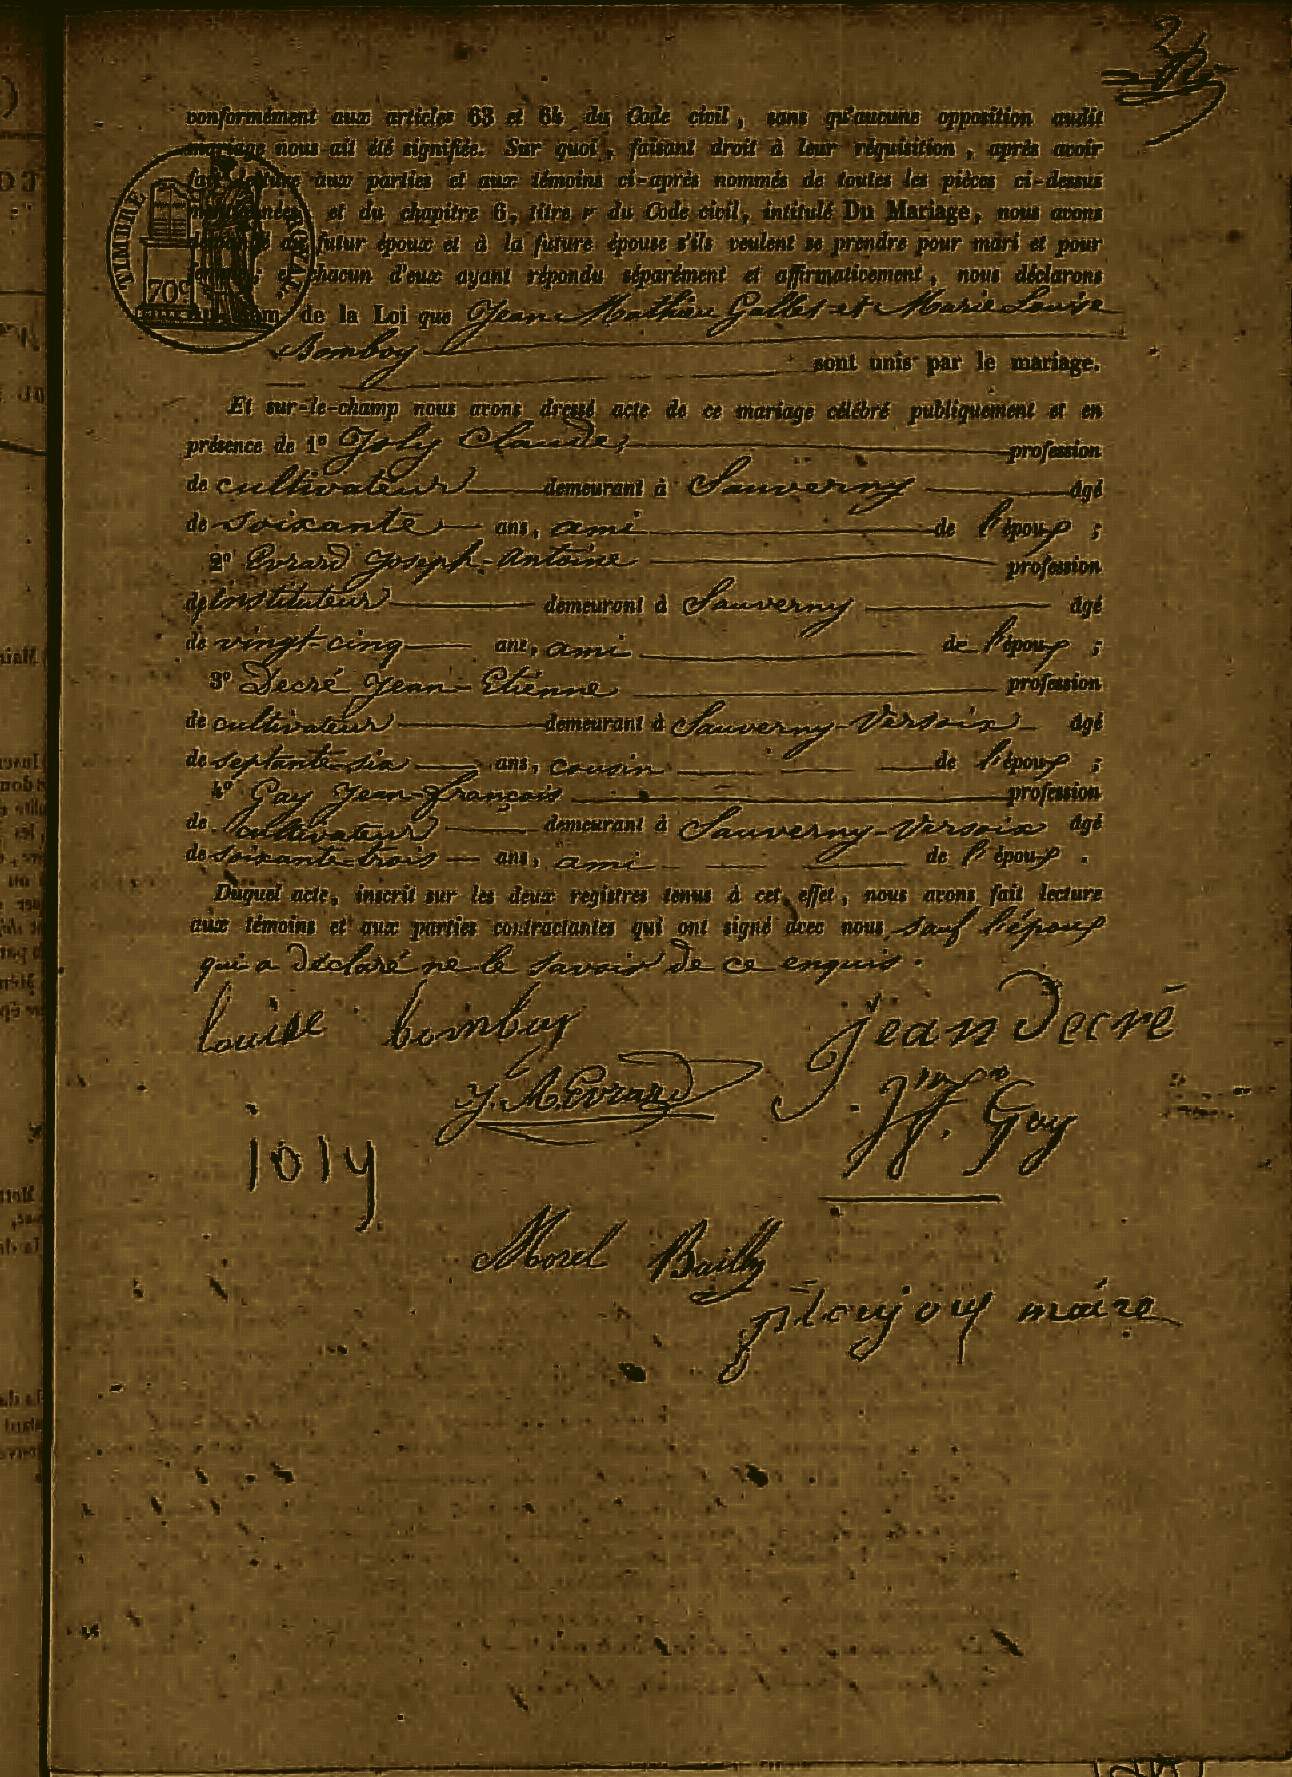 conformément aux articles 63 et 64 du Code civil, sans qu'aucune opposition audit
mariage nous ait été signifiée. Sur quoi, faisant droit à leur réquisition, après avoir
aux parties et aux témoins ci-après nommés de toutes les pièces ci-dessus
et du chapitre 6, titre v du Code civil, intitulé Du Mariage, nous avons
futur époux et à la future épouse s'ils veulent se prendre pour mari et pour
chacun d'eux ayant répondu séparément et affirmativement, nous déclarons
TIMBRE
70c
de la Loi que Jean Mathieu Gallet et Marie Louise
Bomboy
sont unis par le mariage.
Et sur-le-champ nous avons dressé acte de ce mariage célébré publiquement et en
présence de 1° Joly Claude, profession
de cultivateur demeurant à Sauverny âgé
de soixante ans, ami de l'époux ;
2° Evrard Joseph-Antoine profession
d'instituteur demeurant à Sauverny âgé
de vingt-cinq ans, ami de l'époux ;
3° Decré Jean-Etienne profession
de cultivateur demeurant à Sauverny-Versoix âgé
de septante-six ans, cousin de l'époux ;
4° Gay Jean-François profession
de cultivateur demeurant à Sauverny-Versoix âgé
de soixante-trois ans, ami de l'époux.
Duquel acte, inscrit sur les deux registres tenus à cet effet, nous avons fait lecture
aux témoins et aux parties contractantes qui ont signé avec nous sauf l'époux
qui a déclaré ne le savoir de ce enquis.
louise bomboy
jean Decré
J. A. Evrard
J. F. Gay
Morel Bailly
maire